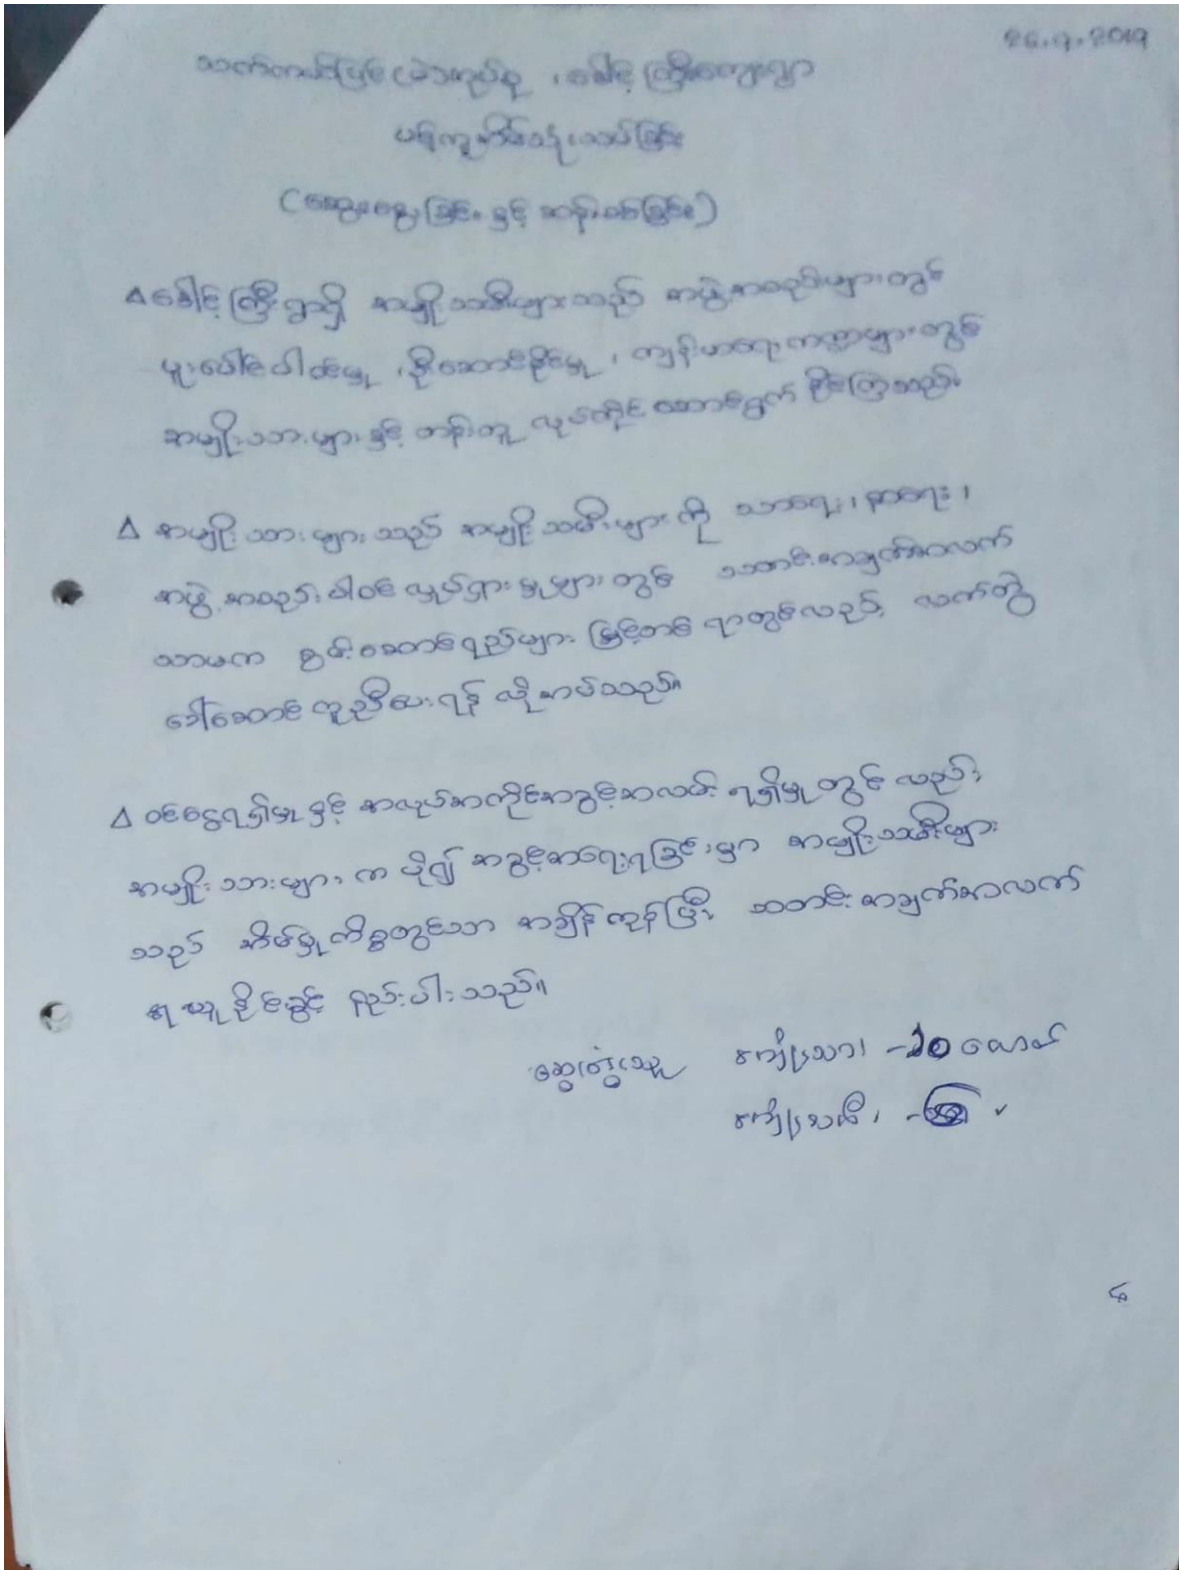 26.9.2019
သက်ကယ်ပြင် ကျေးရွာ
(ဆွေးနွေးခြင်း နှင့် ဆန်းစစ်ခြင်း)
Δ ခေါင့်ကြီးရွာရှိ အမျိုးသမီးများသည် အဖွဲ့အစည်းများတွင်
ပူးပေါင်းပါဝင်မှု၊ ဦးဆောင်နိုင်မှု၊ ကျန်းမာရေးကဏ္ဍများတွင်
အမျိုးသားများနှင့် တန်းတူ လုပ်ကိုင် ဆောင်ရွက် နိုင်ကြသည်။
Δ အမျိုးသားများသည် အမျိုးသမီးများကို သာရေး၊ နာရေး၊
အဖွဲ့အစည်းပါဝင် လှုပ်ရှားမှုများတွင် သတင်းအချက်အလက်
သာမက စွမ်းဆောင်ရည်များ မြှင့်တင်ရာတွင်လည်း လက်တွဲ
ခေါ်ဆောင် ကူညီပေးရန် လိုအပ်သည်။
Δ ဝင်ငွေရရှိမှုနှင့် အလုပ်အကိုင်အခွင့်အလမ်း ရရှိမှုတွင် လည်း
အမျိုးသားများက ပို၍ အခွင့်အရေးရခြင်းမှာ အမျိုးသမီးများ
သည် အိမ်မှုကိစ္စတွင်သာ အချိန်ကုန်ပြီး သတင်းအချက်အလက်
ရယူနိုင်ခွင့် နည်းပါးသည်။
ဆွေးနွေးသူ ကျား - ၁၀ ယောက်